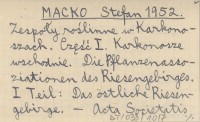 MACKO Stefan 1952.
Zespoły roślinne w Karkono-
szach. Część I. Karkonosze
wschodnie. Die Pflanzenasso-
ziationen des Riesengebirges.
I Teil: Das östliche Riesen-
gebirge. — Acta Societatis